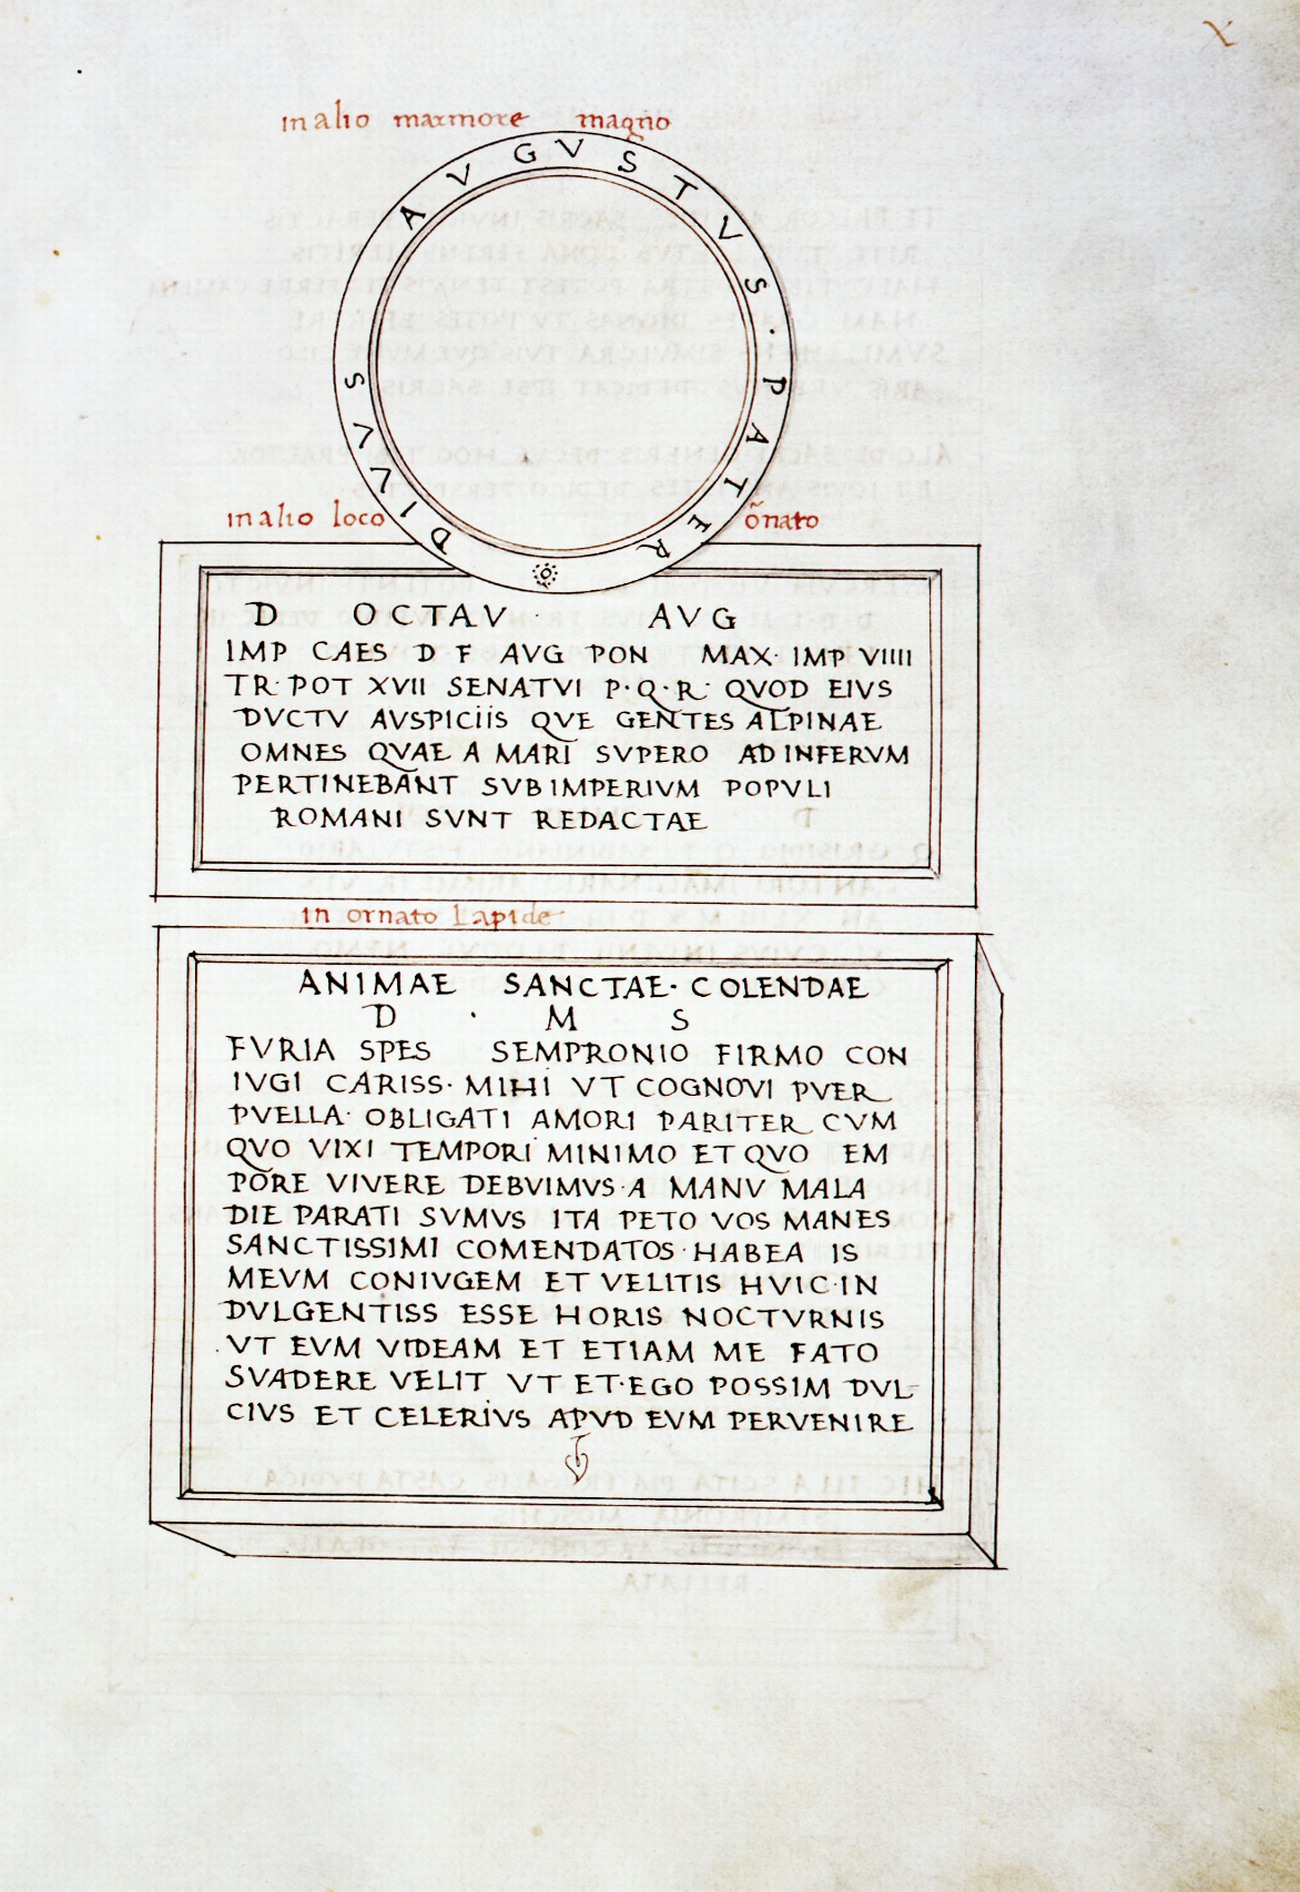 X
in alio marmore magno
DIVVS AVGVSTVS · PATER
in alio loco õnato
D OCTAV · AVG
IMP CAES D F AVG PON MAX · IMP VIIII
TR · POT XVII SENATVI P · Q · R · QVOD EIVS
DVCTV AVSPICiiS QVE GENTES ALPINAE
OMNES QVAE A MARI SVPERO AD INFERVM
PERTINEBANT SVB IMPERIVM POPVLI
ROMANI SVNT REDACTAE
in ornato Lapide
ANIMAE SANCTAE · COLENDAE
D · M S
FVRIA SPES SEMPRONIO FIRMO CON
IVGI CARISS · MIHI VT COGNOVI PVER
PVELLA · OBLIGATI AMORI PARITER CVM
QVO VIXI TEMPORI MINIMO ET QVO EM
PORE VIVERE DEBVIMVS · A MANV MALA
DIE PARATI SVMVS ITA PETO VOS MANES
SANCTISSIMI COMENDATOS · HABEA IS
MEVM CONIVGEM ET VELITIS HVIC · IN
DVLGENTISS ESSE HORIS NOCTVRNIS
VT EVM VIDEAM ET ETIAM ME FATO
SVADERE VELIT VT ET · EGO POSSIM DVL
CIVS ET CELERiVS APVD EVM PERVENIRE